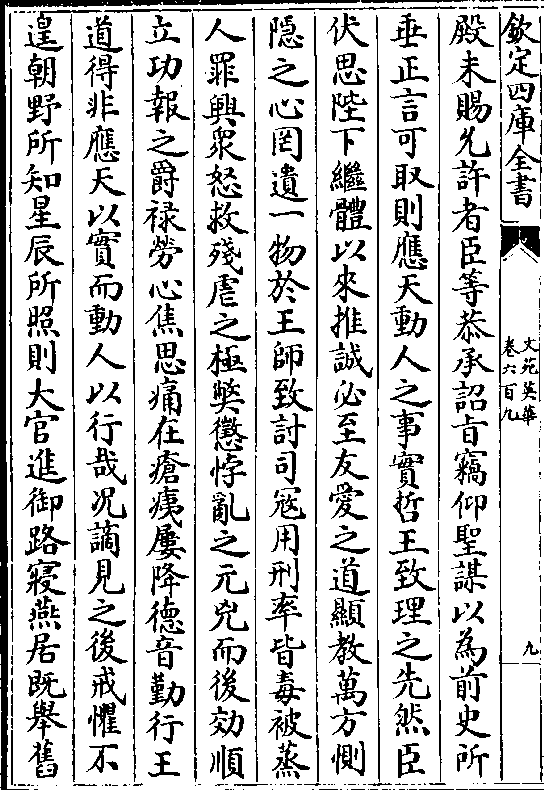 欽定四庫全書
文苑英華
卷六百九
九
殿未賜允許者臣等恭承詔旨竊仰聖謀以為前史所
垂正言可取則應天動人之事實哲王致理之先然臣
伏思陛下繼體以來推誠必至友愛之道顯教萬方惻
隠之心罔遺一物於王師致討司冦用刑率皆毒被蒸
人罪興衆怒救殘虐之極獘懲悖亂之元兇而後効順
立功報之爵禄勞心焦思痛在瘡痍屢降德音勤行王
道得非應天以實而動人以行哉况謫見之後戒懼不
遑朝野所知星辰所照則大官進御路寢燕居既舉舊